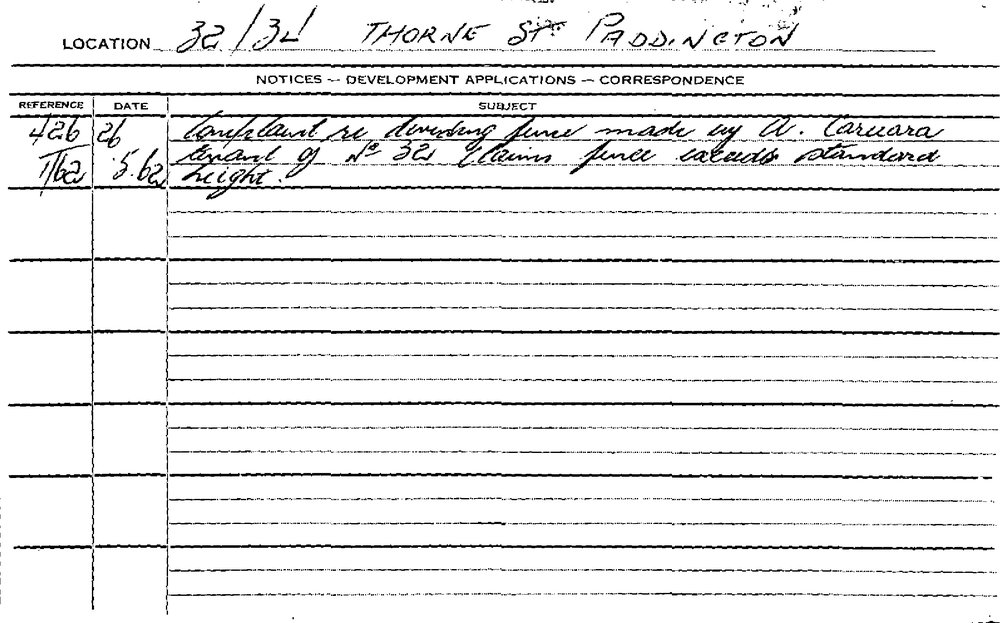 LOCATION 32/34 THORNE ST PADDINGTON
NOTICES — DEVELOPMENT APPLICATIONS — CORRESPONDENCE
REFERENCE DATE SUBJECT
426 26 Complaint re dividing fence made by A. Caruara
1/62 5.62 tenant of No 32 Claims fence exceeds standard
height.